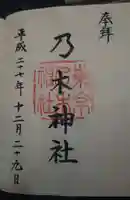 奉拝
乃木神社
平成二十七年十二月二十九日